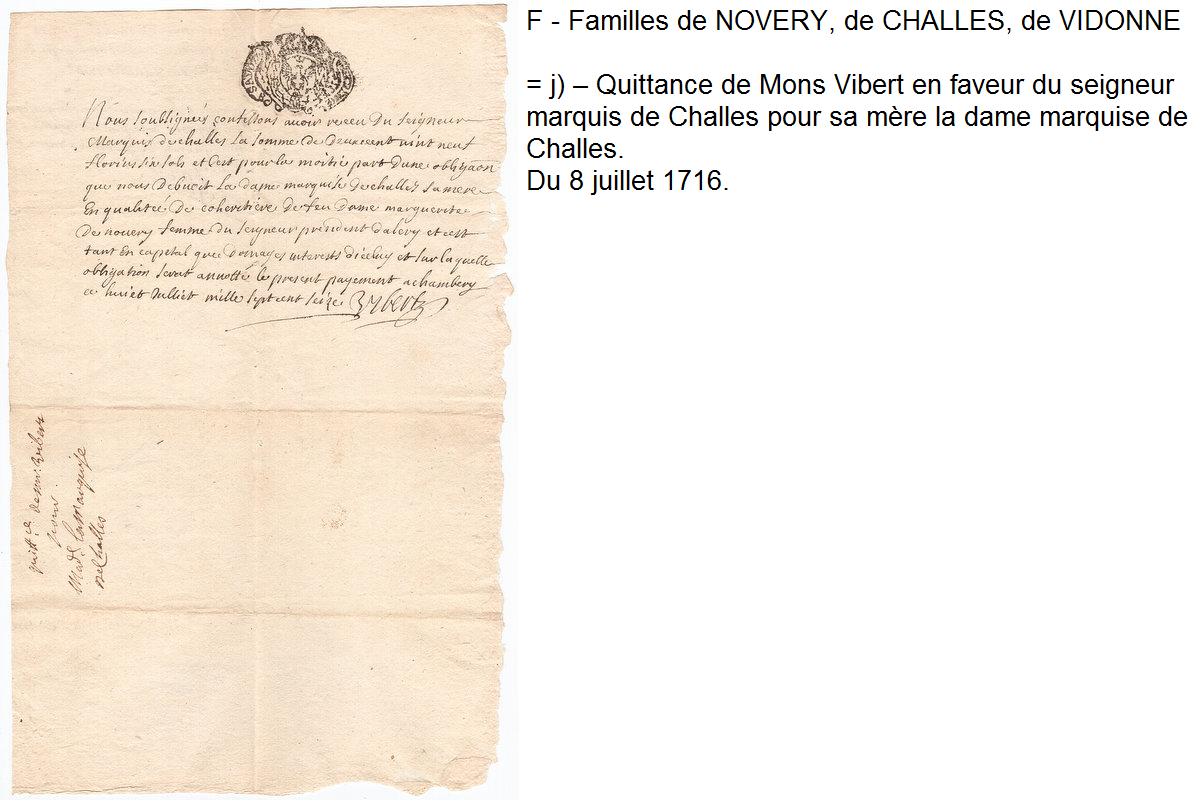 Nous soubsignés confessons avoir receu du seigneur
Marquis de challes la somme de deux cent vint neuf
florins six sols et c'est pour la moitié part d'une obligaon
que nous debvoit la dame marquise de challes sa mere
En qualitée de coheretiere de feu dame marguerite
de novery femme du seigneur president dalery et c'est
tant en capital que domages interests d'icelluy et sur laquelle
obligation serat annotté le present payement a chambery
ce huict Julliet mille sept cent seize Vibert
quitt.ce de mr. vibert
pour
Mad.e la marquise
de Challes
F - Familles de NOVERY, de CHALLES, de VIDONNE
= j) – Quittance de Mons Vibert en faveur du seigneur
marquis de Challes pour sa mère la dame marquise de
Challes.
Du 8 juillet 1716.